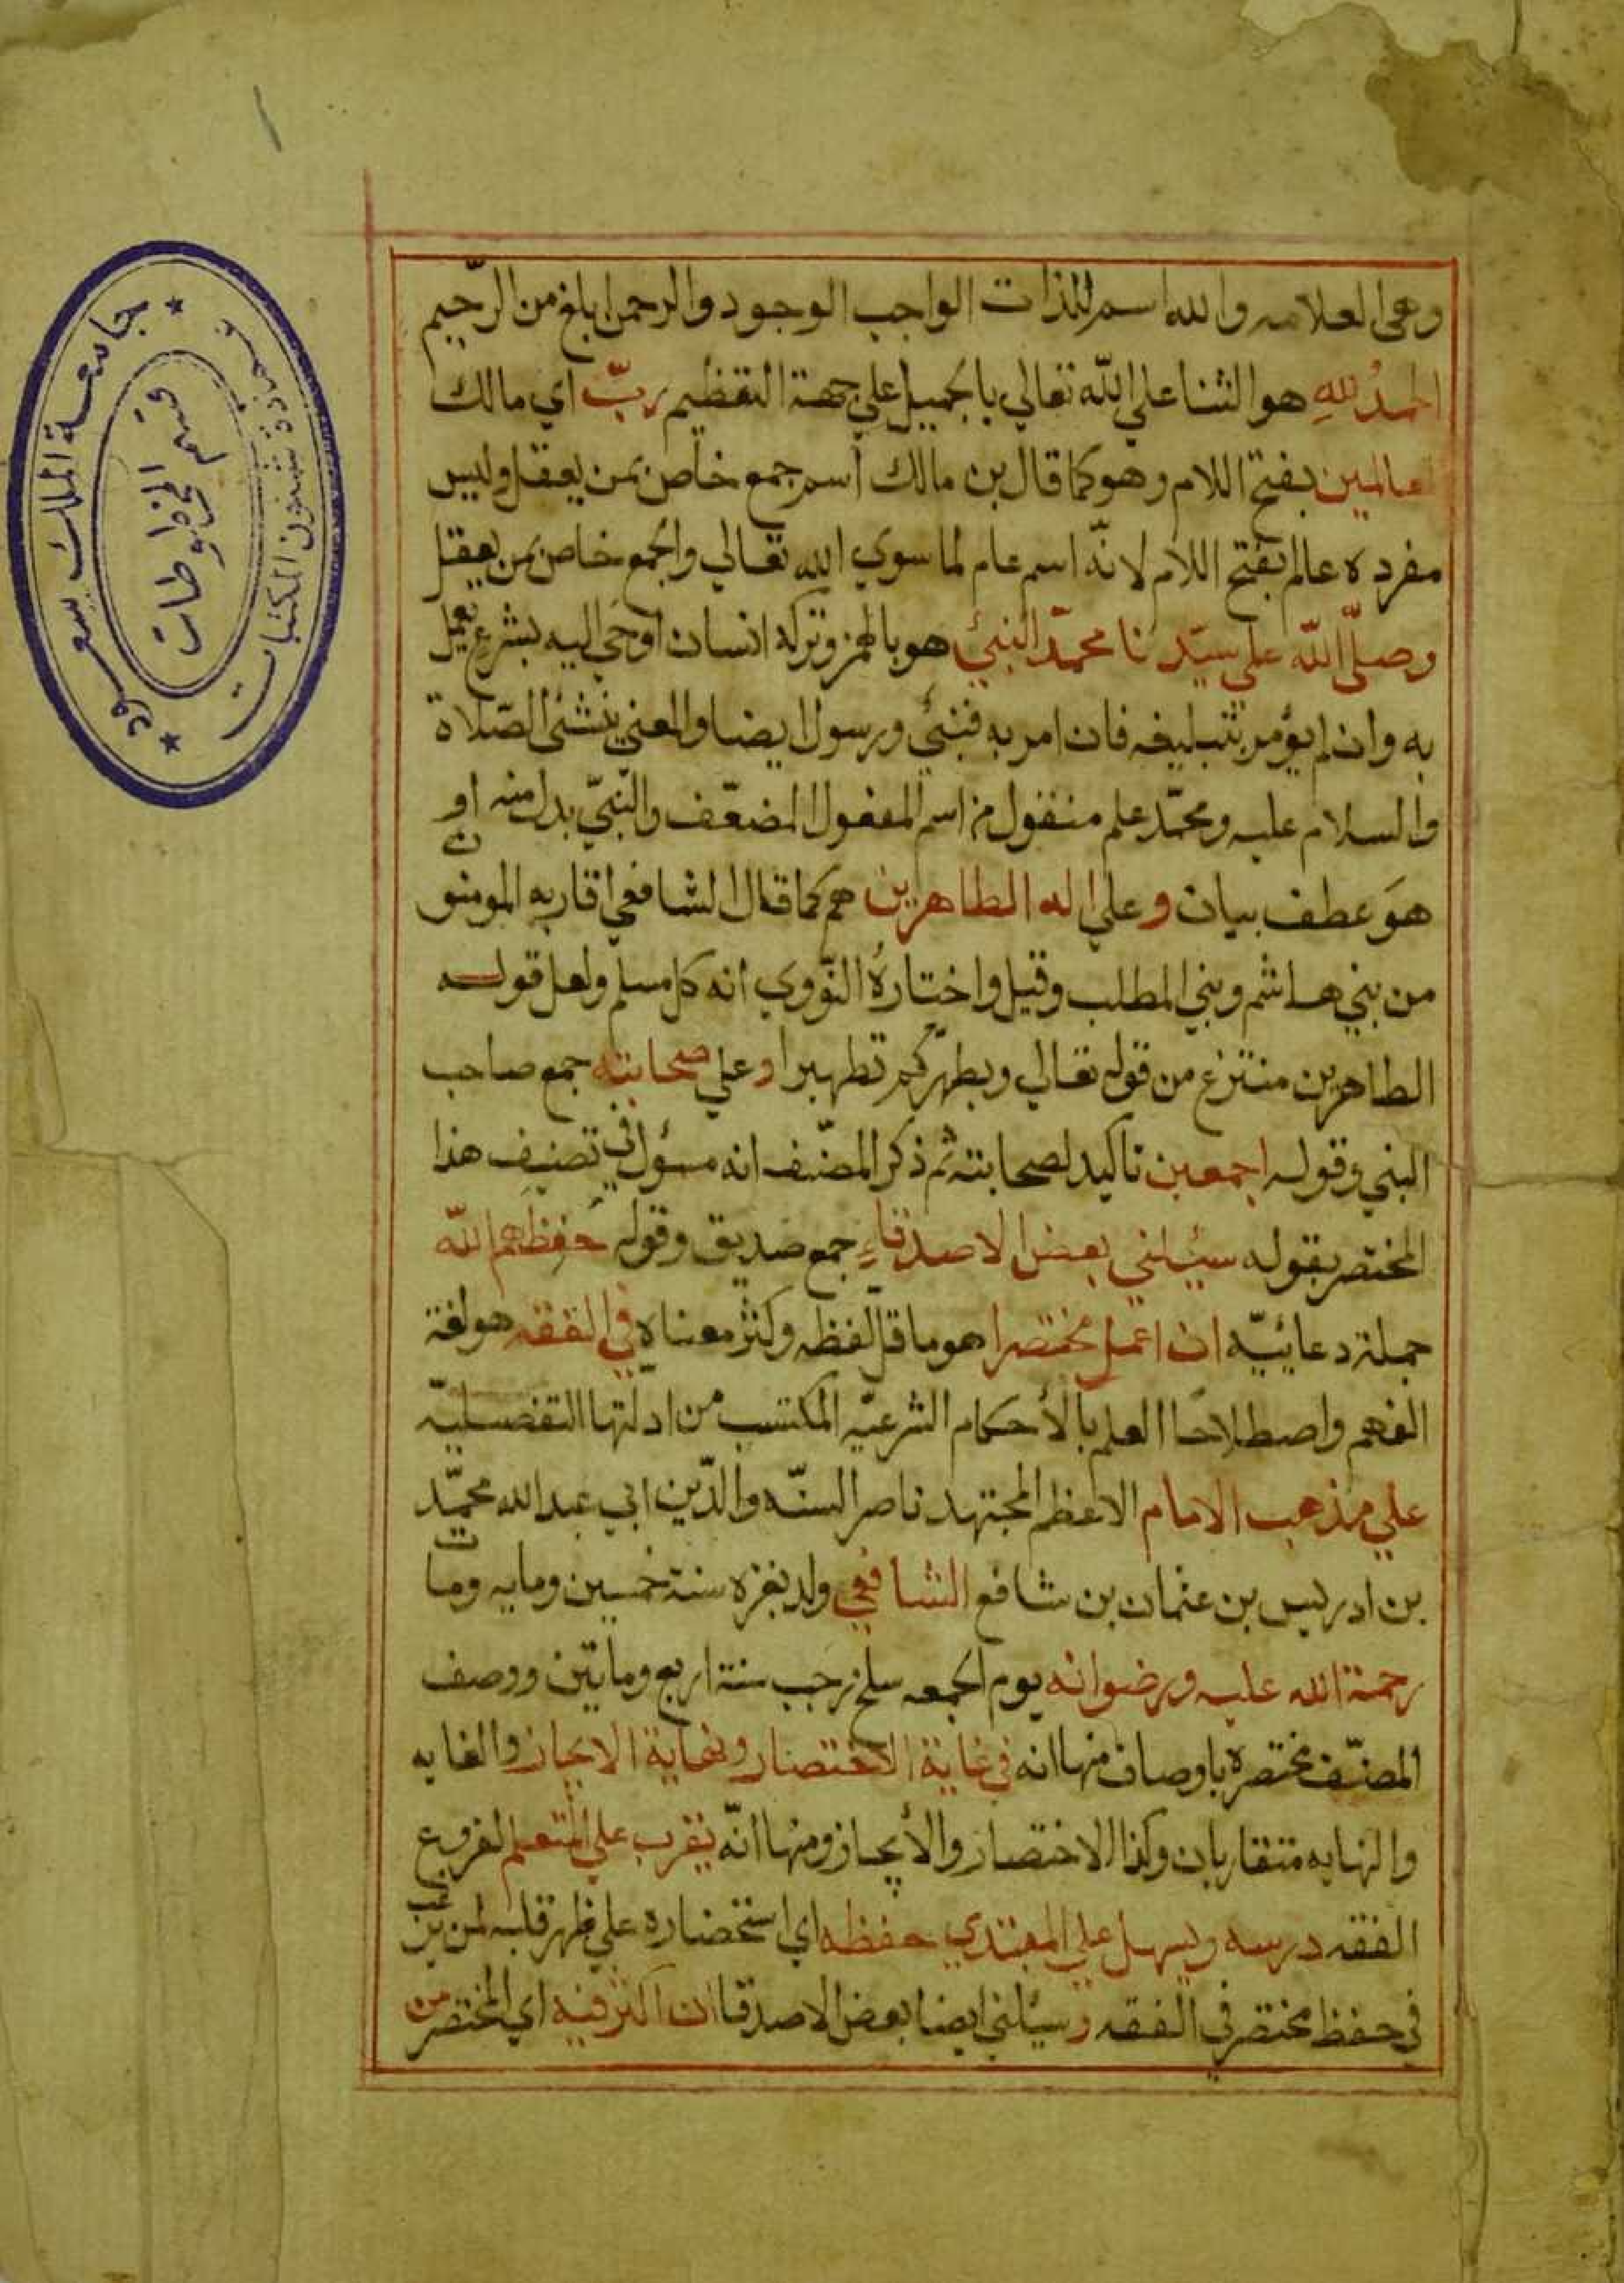 وهي العلامه والله اسم للذات الواجب الوجود والرحمن ابلغ من الرّحيم
الحمدُ للهِ هو الثنا علي اللّه تعالي بالجميل علي جهة التعظيم ربّ اي مالك
العالمين بفتح اللام وهو كما قال بن مالك اسم جمع خاص بمن يعقل وليس
مفرده عالم بفتح اللام لانّه اسم عام لما سوي الله تعالي والجمع خاص بمن يعقل
وصلّي اللّه علي سيّدنا محمّد النبئي هو بالهمز وتركه انسان اوحي اليه بشرع يعمل
به وان لم يؤمر بتبليغه فان امر به فنبئي ورسول ايضا والمعني ينشئ الصّلاة
والسلام عليه ومحمّد علم منقول من اسم المفعول المضعّف والنّبيّ بدل منه او
هوَ عطف بيان وعلي اله الطاهرين هم كما قال الشافعي اقاربه المومنون
من بني هاشم وبني المطلب وقيل واختارهُ النّووي انه كل مسلم ولعل قوله
الطاهرين منتزع من قوله تعالي ويطهّركم تطهيرا وعلي صحابته جمع صاحب
النبي وقوله اجمعين تاكيد لصحابته ثم ذكر المصّنف انه مسؤل في تصنيف هذا
المختصر بقوله سيئلني بعض الاصدقاءِ جمع صديق وقوله حفِظهم اللّه
جملة دعائيّه ان اعمل مختصرا هو ما قلّ لفظه وكثر معناه في الفقه هو لغة
الفهم واصطلاحًا العلم بالأحكام الشرعيّه المكتسب من ادلتها التفصليّه
علي مذهب الامام الاعظم المجتهد ناصر السنّه والدّين ابي عبدالله محمّد
بن ادريس بن عثمان بن شافع الشافعي ولد بغزه سنة خمسين ومايه ومات
رحمة الله عليه ورضوانه يوم الجمعه سلخ رجب سنة اربع ومايتين ووصف
المصنّف مختصره باوصاف منها انه في غاية الاختصار ونهاية الايجاز والغايه
والنهايه متقاربان وكذا الاختصار والأيجاز ومنها انّه يقرب علي المتعلم لفروع
الفقه درسه ويسهل علي المبتدي حفظه اي استحضاره علي ظهر قلبه لمن يرغب
في حفظ مختصر في الفقه وسيئلني ايضا بعض الاصدقا ان اكثر فيه اي المختصر من
جامعة الملك سعود
عمادة شئون المكتبات
قسم المخطوطات